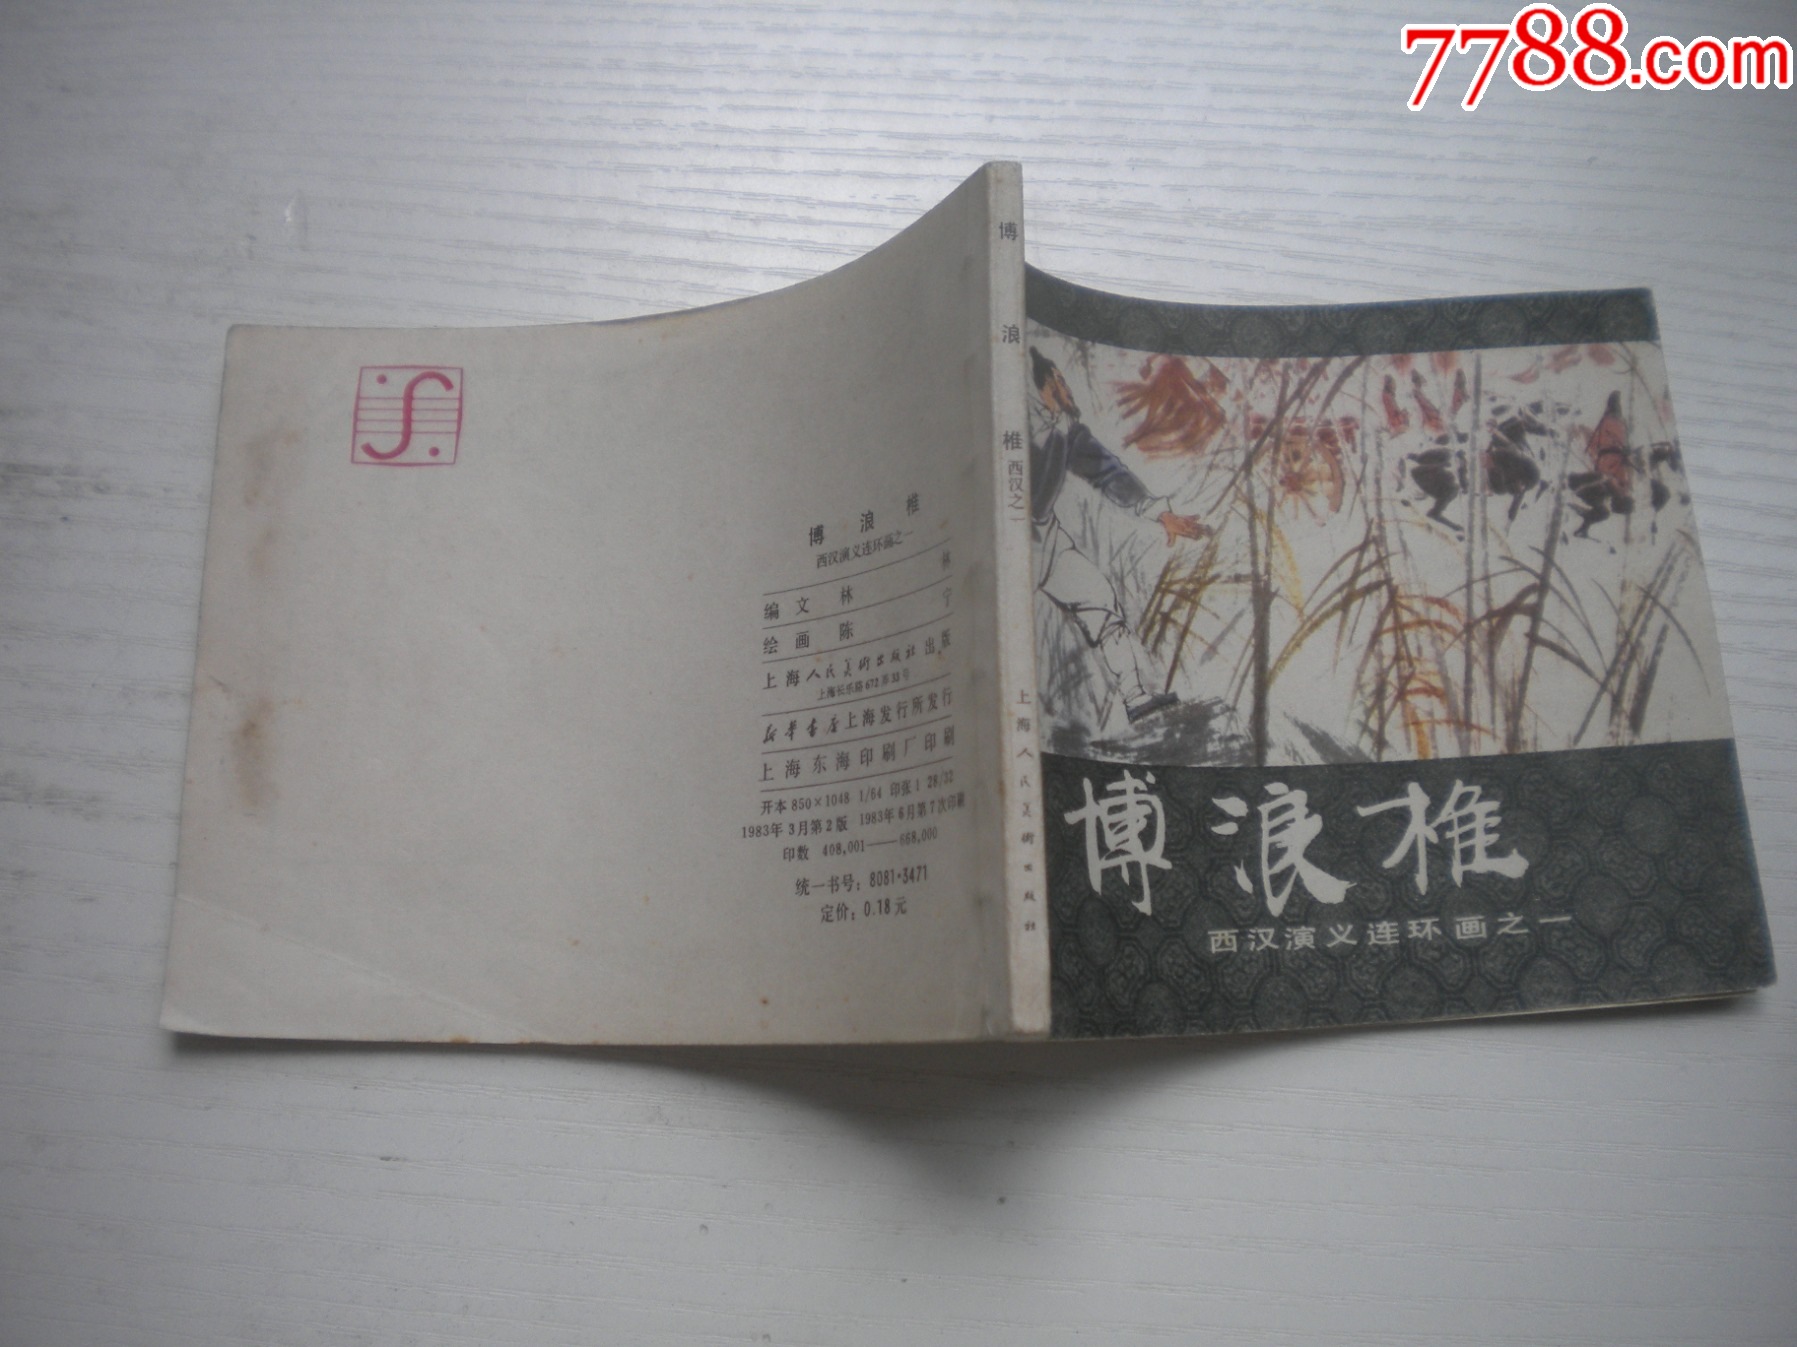 7788.com
博浪椎
西汉之一
上海人民美術出版社
博浪椎
西汉演义连环画之一
编文 林 林
绘画 陈 宁
上海人民美術出版社出版
上海长乐路672弄33号
新华书店上海发行所发行
上海东海印刷厂印刷
开本 850×1048 1/64 印张 1 28/32
1983年3月第2版 1983年6月第7次印刷
印数 408,001——668,000
统一书号：8081·3471
定价：0.18元
博浪椎
西汉演义连环画之一